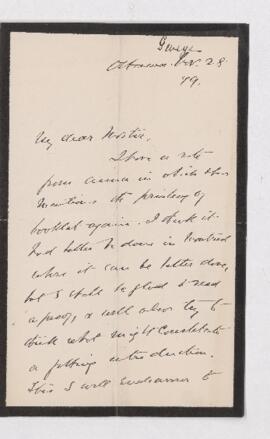 Ottawa. Nov. 28
79.
My dear
I have a note
from in which she
mentions the printing of
booklet again. I think it
had better be done in Montreal
where it can be better done,
but I shall be glad to read
a proof, & will also try to
think what might constitute
a fitting introduction.
This I will endeavour to